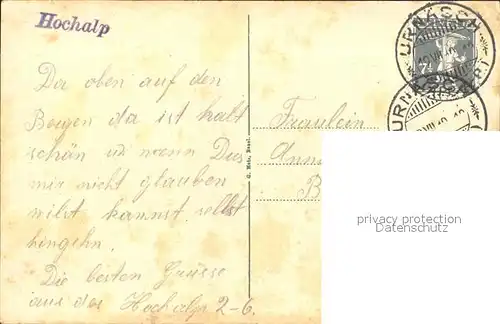 Hochalp
Da oben auf den
Bergen da ist halt
schön u. wenn Du's
mir nicht glauben
willst kannst selbst
hingehn.
Die besten Grüsse
aus der Hochalp 2-6.
G. Metz, Basel.
Fräulein
Anna
B
URNÄSCH
URNÄSCH
privacy protection
Datenschutz